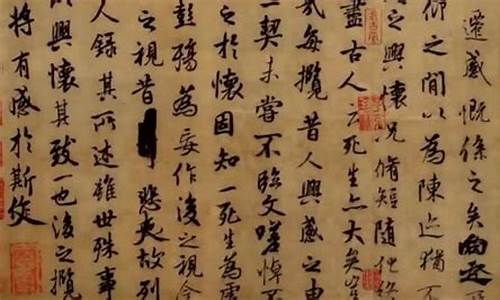 遷感慨係之矣向之
仰之閒以為陳迹猶不
之興懷況脩短隨化終
盡古人云死生亦大矣豈
每攬昔人興感之由
一契未嘗不臨文嗟悼不
之於懷固知一死生為虛
彭殤為妄作後之視今
之視昔悲夫故列
人錄其所述雖世殊事
以興懷其致一也後之攬
將有感於斯文